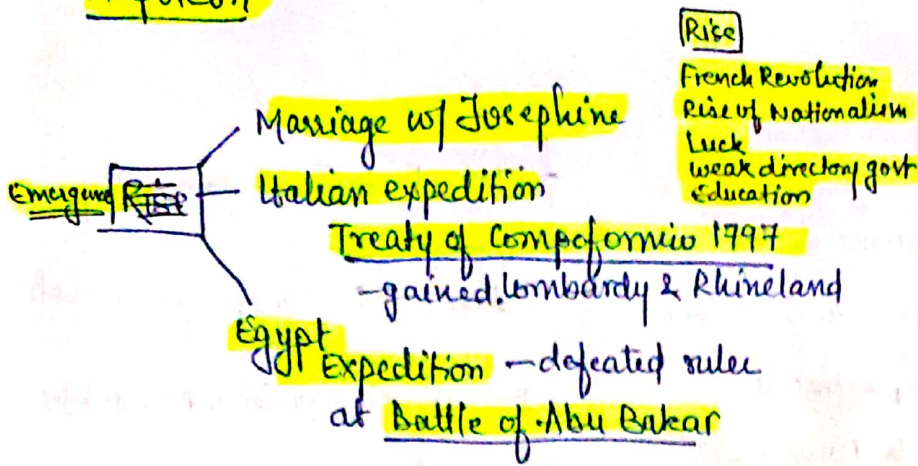 Rise
French Revolution
Rise of Nationalism
Luck
weak directory govt
Education
Marriage w/ Josephine
Emergence
Italian expedition
Treaty of Compoformio 1797
- gained Lombardy & Rhineland
Egypt
Expedition - defeated ruler
at Battle of Abu Bakar